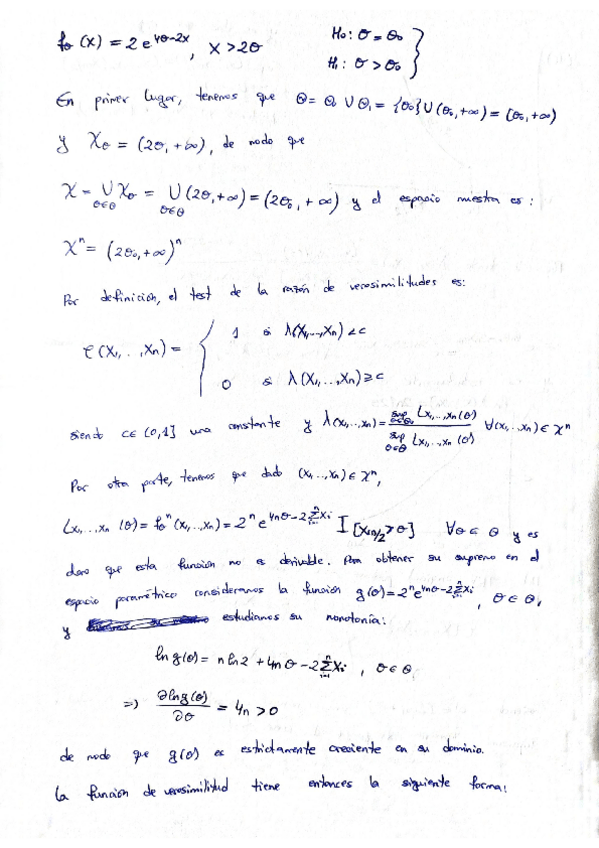 fθ(x) = 2 e^{4θ-2x}, x > 2θ   H₀: θ = θ₀ }
H₁: θ > θ₀
En primer lugar, tenemos que Θ = Θ₀ ∪ Θ₁ = {θ₀} ∪ (θ₀, +∞) = [θ₀, +∞)
y χ_θ = (2θ, +∞), de modo que
χ = ∪_{θ∈Θ} χ_θ = ∪_{θ∈Θ} (2θ, +∞) = (2θ₀, +∞) y el espacio muestra es:
χⁿ = (2θ₀, +∞)ⁿ
Por definición, el test de la razón de verosimilitudes es:
τ(X₁, .., Xₙ) = { 1 si λ(X₁,..,Xₙ) < c
0 si λ(X₁,..,Xₙ) ≥ c
siendo c ∈ (0,1] una constante y λ(x₁,..,xₙ) = sup_{θ∈Θ₀} L_{x₁,..,xₙ}(θ) / sup_{θ∈Θ} L_{x₁,..,xₙ}(θ) ∀(x₁,..,xₙ) ∈ χⁿ
Por otra parte, tenemos que dado (x₁,..,xₙ) ∈ χⁿ,
L_{x₁,..,xₙ}(θ) = fθⁿ(x₁,..,xₙ) = 2ⁿ e^{4nθ-2∑_{i=1}^n xᵢ} I[x₍₁₎/2 > θ] ∀θ ∈ Θ y es
claro que esta función no es derivable. Para obtener su supremo en el
espacio paramétrico consideramos la función g(θ) = 2ⁿ e^{4nθ-2∑_{i=1}^n xᵢ}, θ ∈ Θ,
y estudiamos su monotonía:
ln g(θ) = n ln 2 + 4nθ - 2∑_{i=1}^n xᵢ, θ ∈ Θ
⇒ ∂ ln g(θ) / ∂θ = 4n > 0
de modo que g(θ) es estrictamente creciente en su dominio.
La función de verosimilitud tiene entonces la siguiente forma: